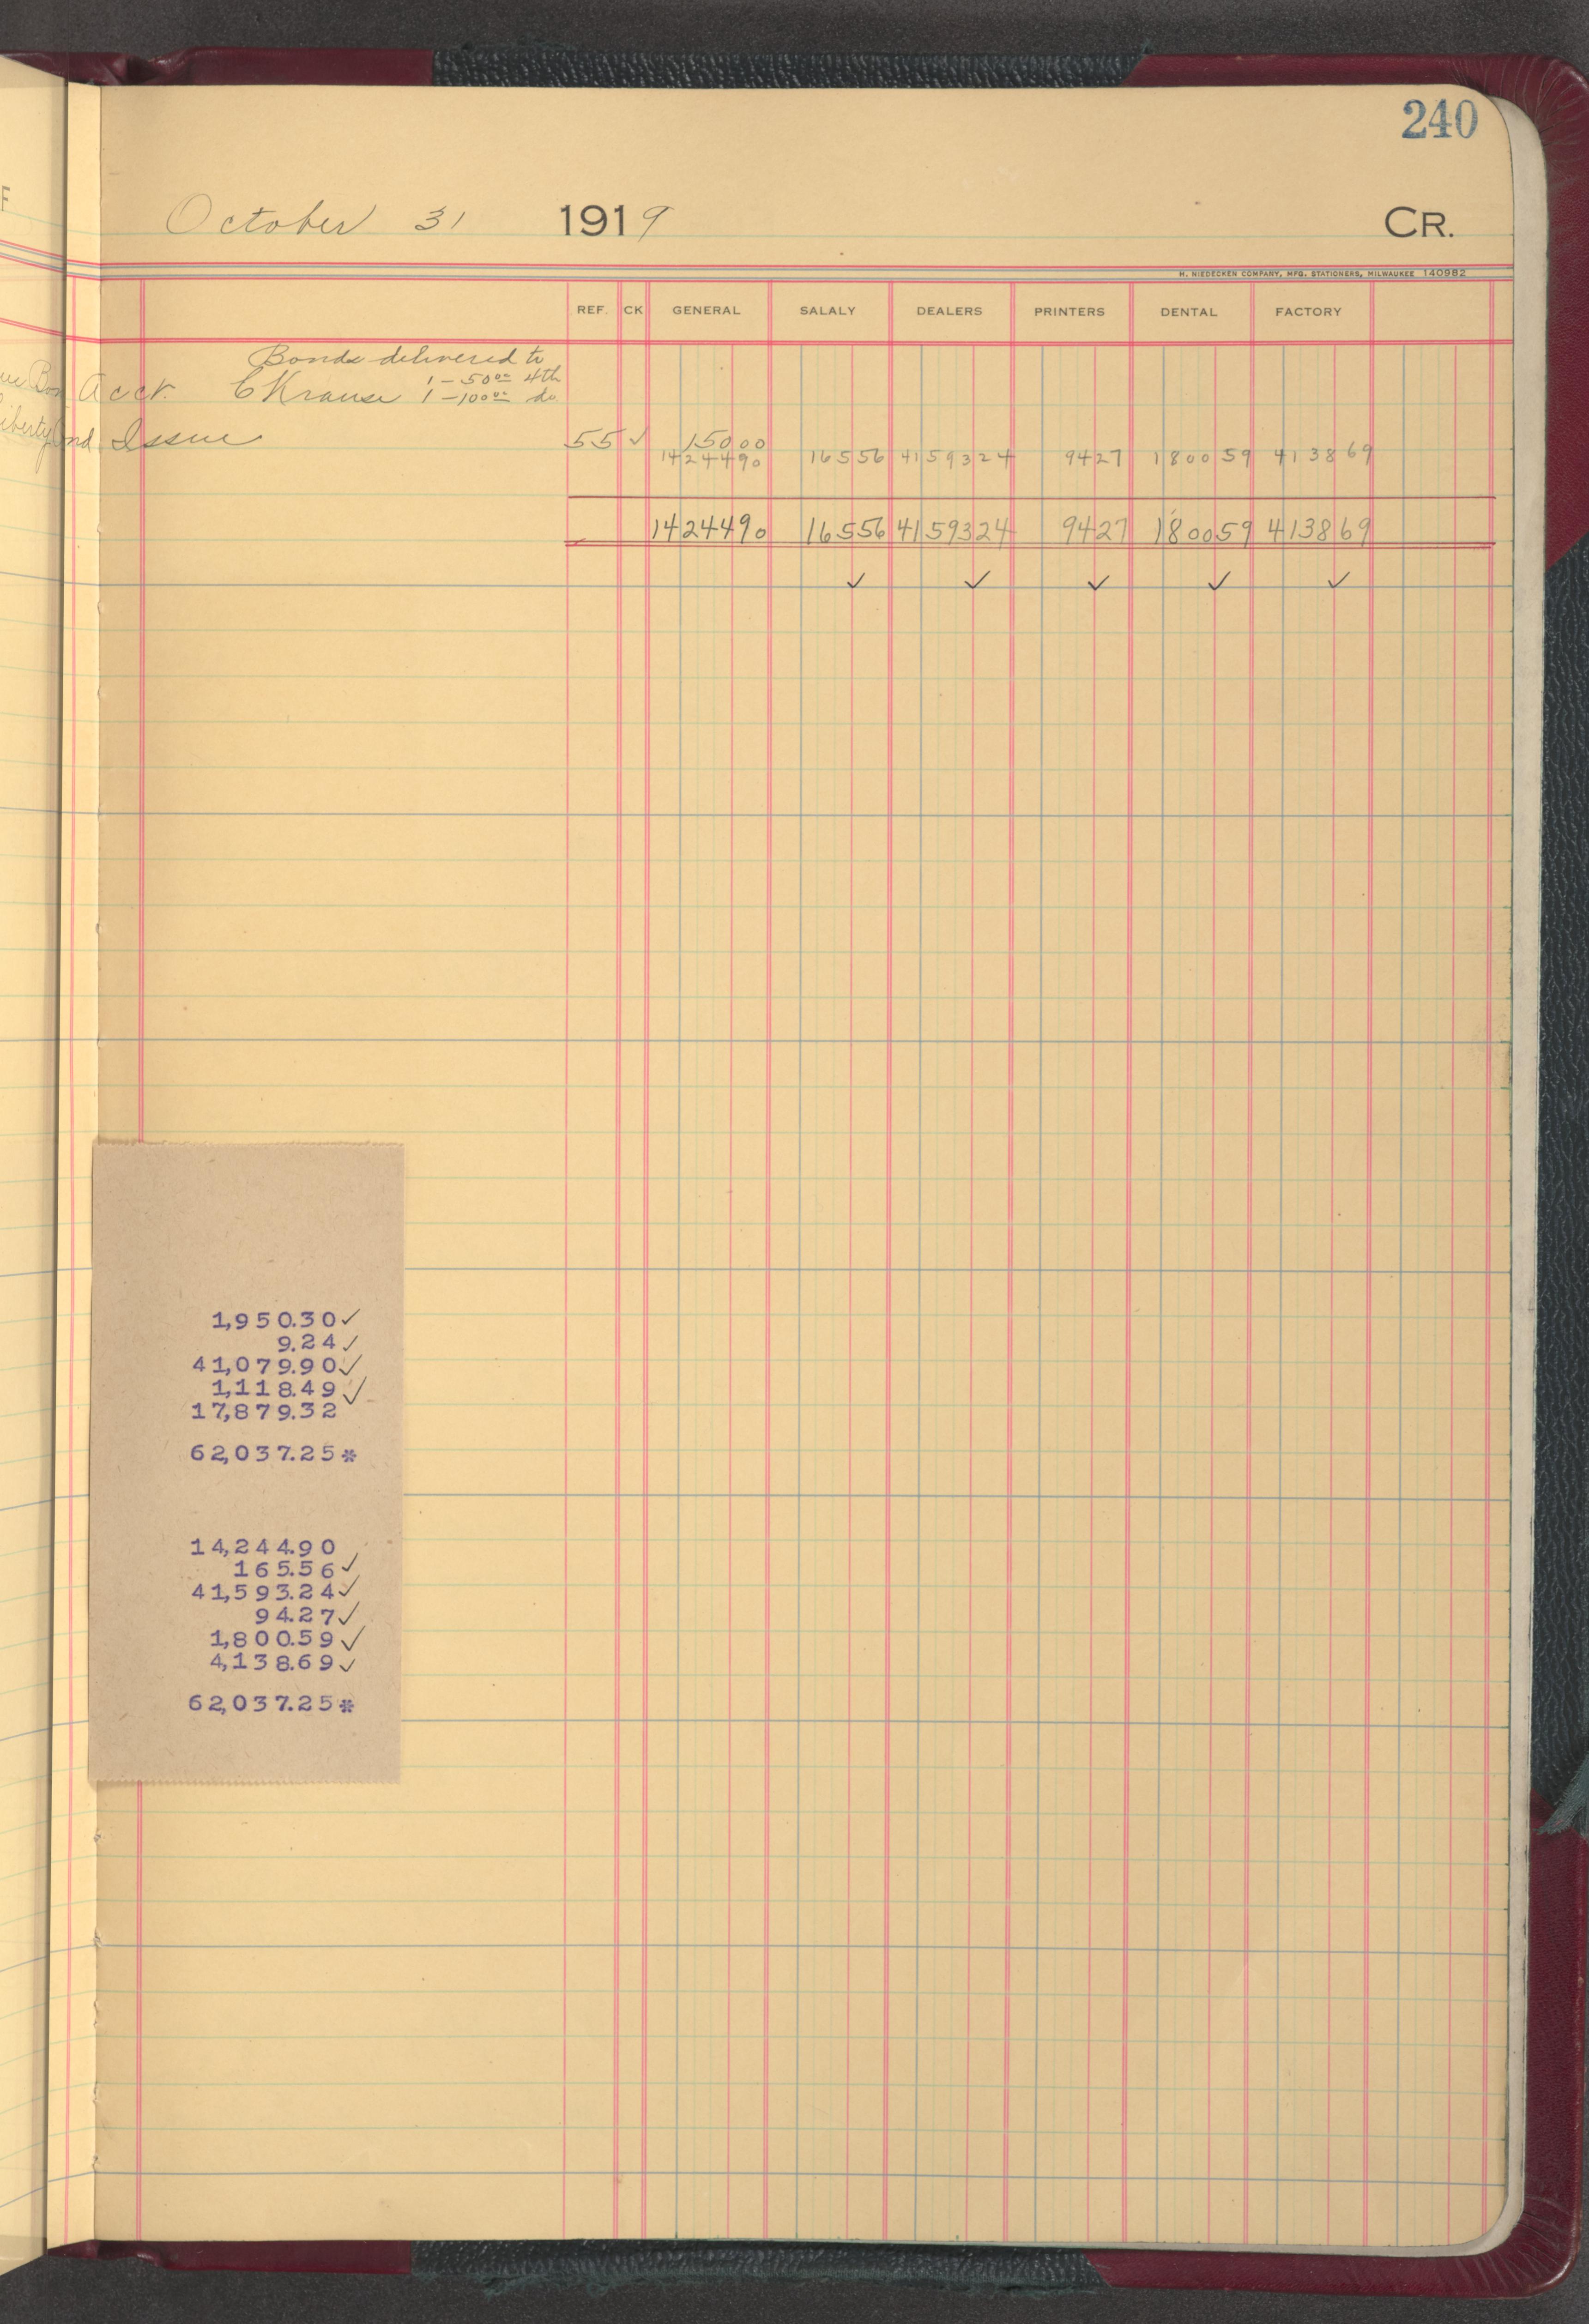 240
October 31 1919 CR.
H. NIEDECKEN COMPANY, MFG. STATIONERS, MILWAUKEE 140982
REF. CK GENERAL SALALY DEALERS PRINTERS DENTAL FACTORY
Bonds delivered to
Acct. C Krause 1-50.00 4th
1-100.00 do
Liberty Issue 55 ✓ 150 00
14244 90 165 56 41593 24 94 27 1800 59 4138 69
14244 90 165 56 41593 24 94 27 1800 59 4138 69
✓ ✓ ✓ ✓ ✓
1,950.30 ✓
9.24 ✓
41,079.90 ✓
1,118.49 ✓
17,879.32
62,037.25*
14,244.90
165.56 ✓
41,593.24 ✓
94.27 ✓
1,800.59 ✓
4,138.69 ✓
62,037.25*